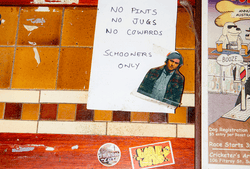 NO PINTS
NO JUGS
NO COWARDS
SCHOONERS
ONLY
BOOZE
Dog Registration
Race Starts 3
Cricketer's Ar